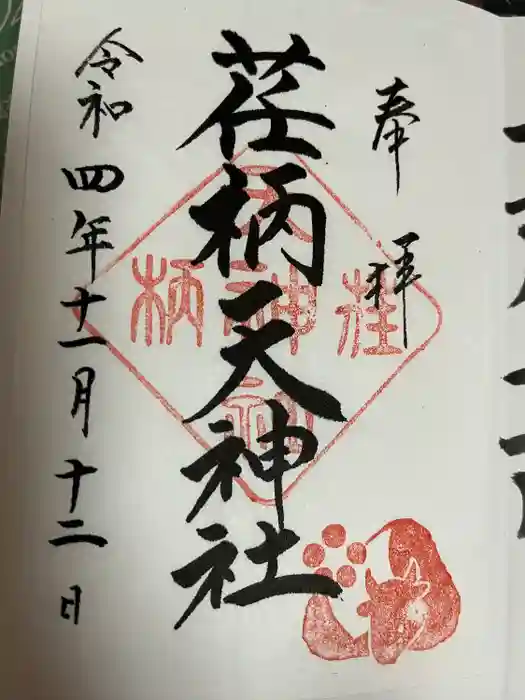 奉拝
荏柄天神社
令和四年十一月十二日
荏
柄
天
神
社